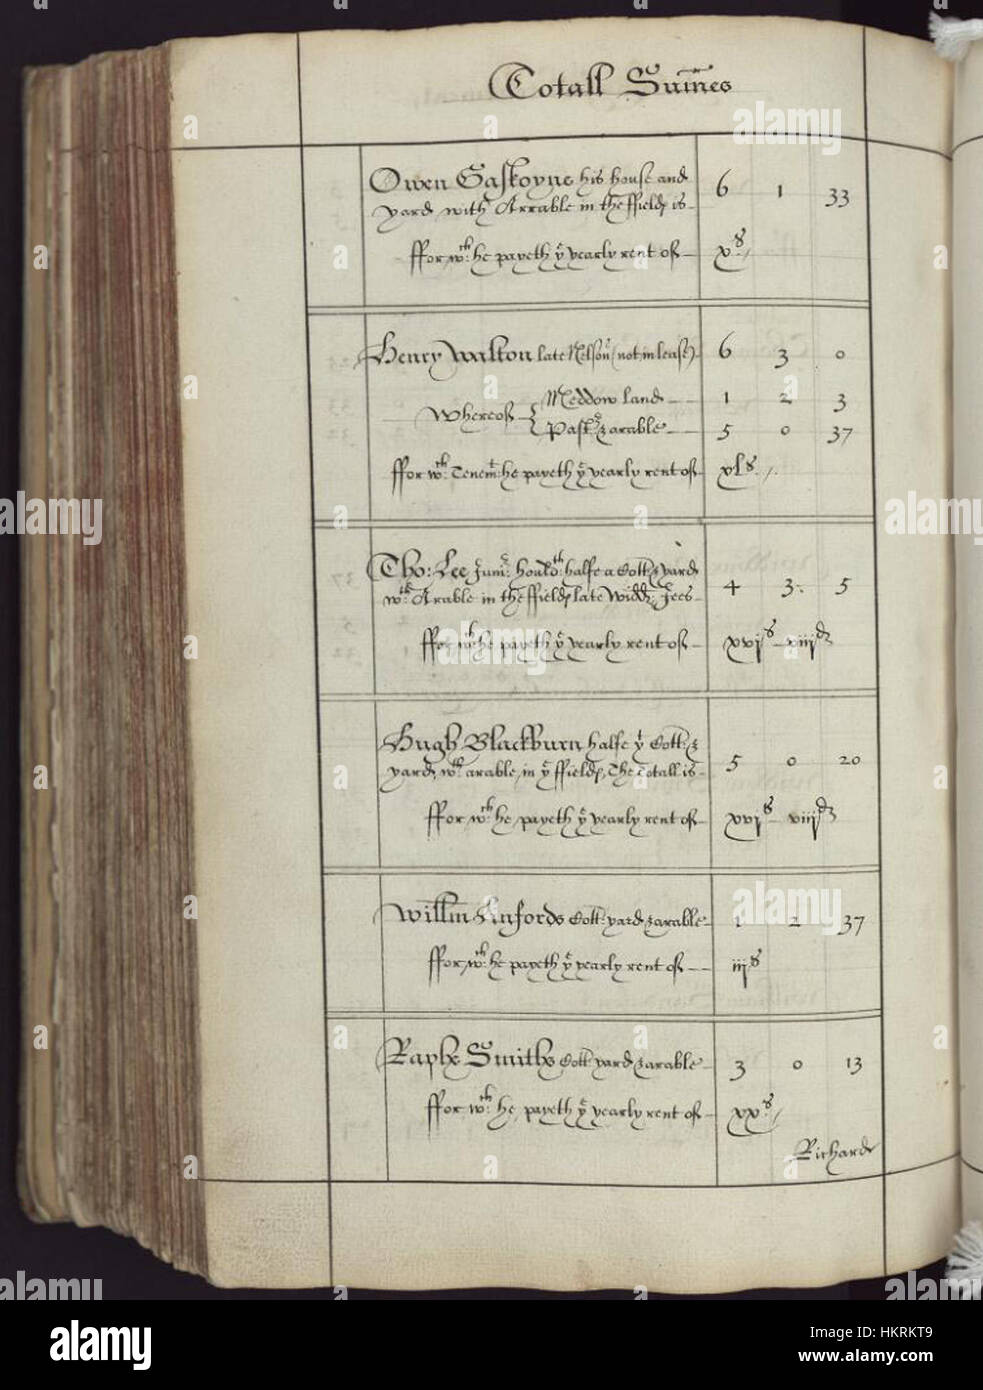 Totall Sum̄es
Owen Gaskoyne his house and 6 1 33
yard with Arrable in the ffields is
ffor wch: he payeth ye yearly rent of xs
Henry Walton late Nelson (not in lease) 6 3 0
Whereof { Meddow land 1 2 3
Past: & arable 5 0 37
ffor wch: Tenemt he payeth ye yearly rent of xls
Tho: Lee Junr: hould:th halfe a Cott: & yard 4 3 5
wth Arable in the ffields late Widd:
ffor wch he payeth ye yearly rent of xvjs viijd
Hugh Blackburn halfe ye Cott: &
yard, wth arable, in ye ffields, The Totall is 5 0 20
ffor wch: he payeth ye yearly rent of xvjs viijd
Willm Cott: yard & arable 1 2 37
ffor wch: he payeth ye yearly rent of iijs
Raphe Smiths Cott: yard & arable 3 0 13
ffor wch: he payeth ye yearly rent of xxs
Richard
alamy
Image ID: HKRKT9
www.alamy.com